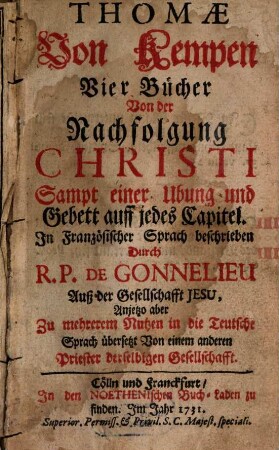 THOMÆ
Von Kempen
Vier Bücher
Von der
Nachfolgung
CHRISTI
Sampt einer Ubung und
Gebett auff jedes Capitel.
In Französischer Sprach beschrieben
Durch
R.P. DE GONNELIEU
Auß der Gesellschafft JESU,
Anjetzo aber
Zu mehrerem Nutzen in die Teutsche
Sprach übersetzt Von einem anderen
Priester derselbigen Gesellschafft.
Cölln und Franckfurt/
In den NOETHENischen Buch-Laden zu
finden. Im Jahr 1731.
Superior. Permiss. & Privil. S. C. Majest. speciali.